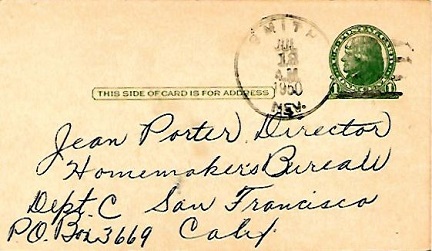 SMITH
JUL
18
A M
1950
NEV.
THIS SIDE OF CARD IS FOR ADDRESS
1 1
Jean Porter Director
Homemakers Bureau
Dept. C San Francisco
P.O. Box 3669 Calif